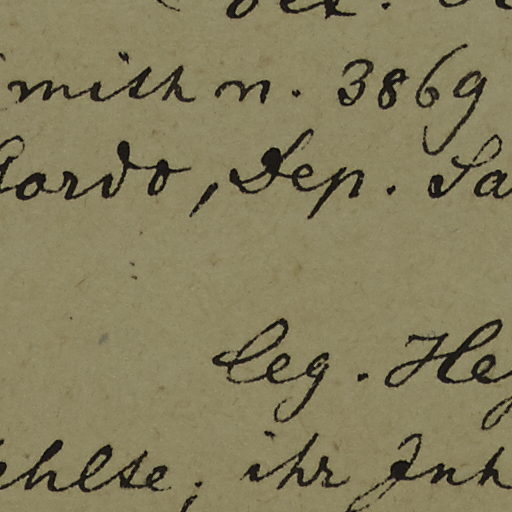 mith n. 3869
Gordo, Dep. Sa
leg. He
ehlte; ihr Inh